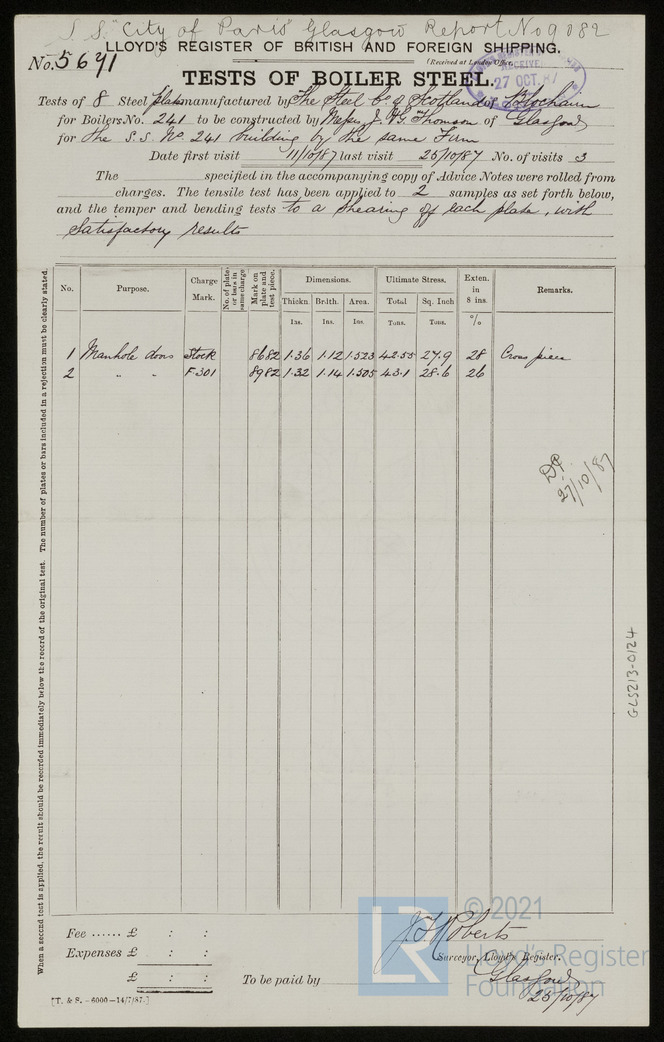 S.S. "City of Paris" Glasgow Report No 9082
LLOYD'S REGISTER OF BRITISH AND FOREIGN SHIPPING.
No. 5691
(Received at London Office,
RECEIVED
27 OCT. 87
TESTS OF BOILER STEEL.
Tests of 8 Steel plates manufactured by The Steel Co. of Scotland of Blochairn
for Boilers No. 241 to be constructed by Messrs J. & G. Thomson of Glasgow
for the S.S. No. 241 building by the same Firm
Date first visit 11/10/87 last visit 25/10/87 No. of visits 3
The specified in the accompanying copy of Advice Notes were rolled from
charges. The tensile test has been applied to 2 samples as set forth below,
and the temper and bending tests to a shearing off each plate, with
satisfactory results
No. Purpose. Charge Mark. No. of plates or bars in same charge Mark on plate and test piece. Dimensions. Ultimate Stress. Exten. in 8 ins. Remarks.
Thickn Br'dth. Area. Total Sq. Inch
Ins. Ins. Ins. Tons. Tons. %
1 Manhole doors Stock 8682 1.36 1.12 1.523 42.55 27.9 28 Cross pieces
2 " " F.301 8982 1.32 1.14 1.505 43.1 28.6 26
27/10/87
GLS213-0124
When a second test is applied, the result should be recorded immediately below the record of the original test. The number of plates or bars included in a rejection must be clearly stated.
Fee ...... £ : :
Expenses £ : :
£ : :
To be paid by
Roberts
Surveyor, Lloyd's Register.
Glasgow
25/10/87
[T. & S. - 6000 - 14/7/87.]
LR
© 2021
Lloyd's Register
Foundation